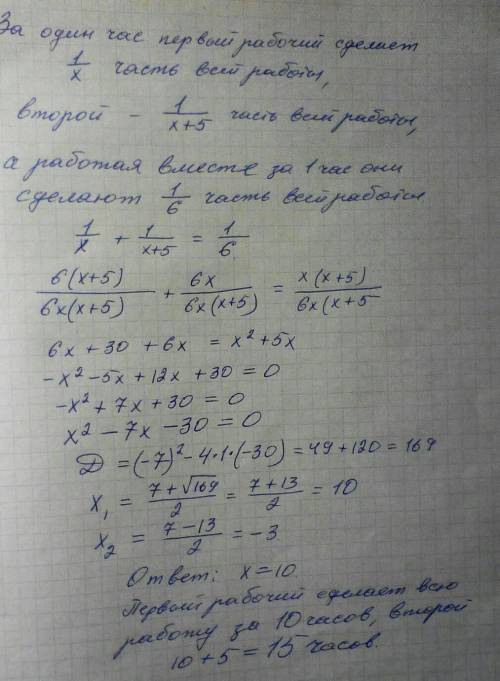 За один час первый рабочий сделает
1/x часть всей работы,
второй - 1/(x+5) часть всей работы,
а работая вместе за 1 час они
сделают 1/6 часть всей работы
1/x + 1/(x+5) = 1/6
6(x+5)/6x(x+5) + 6x/6x(x+5) = x(x+5)/6x(x+5
6x + 30 + 6x = x² + 5x
-x² - 5x + 12x + 30 = 0
-x² + 7x + 30 = 0
x² - 7x - 30 = 0
D = (-7)² - 4·1·(-30) = 49 + 120 = 169
x₁ = (7+√169)/2 = (7+13)/2 = 10
x₂ = (7-13)/2 = -3
Ответ: x = 10.
Первый рабочий сделает всю
работу за 10 часов, второй
10 + 5 = 15 часов.